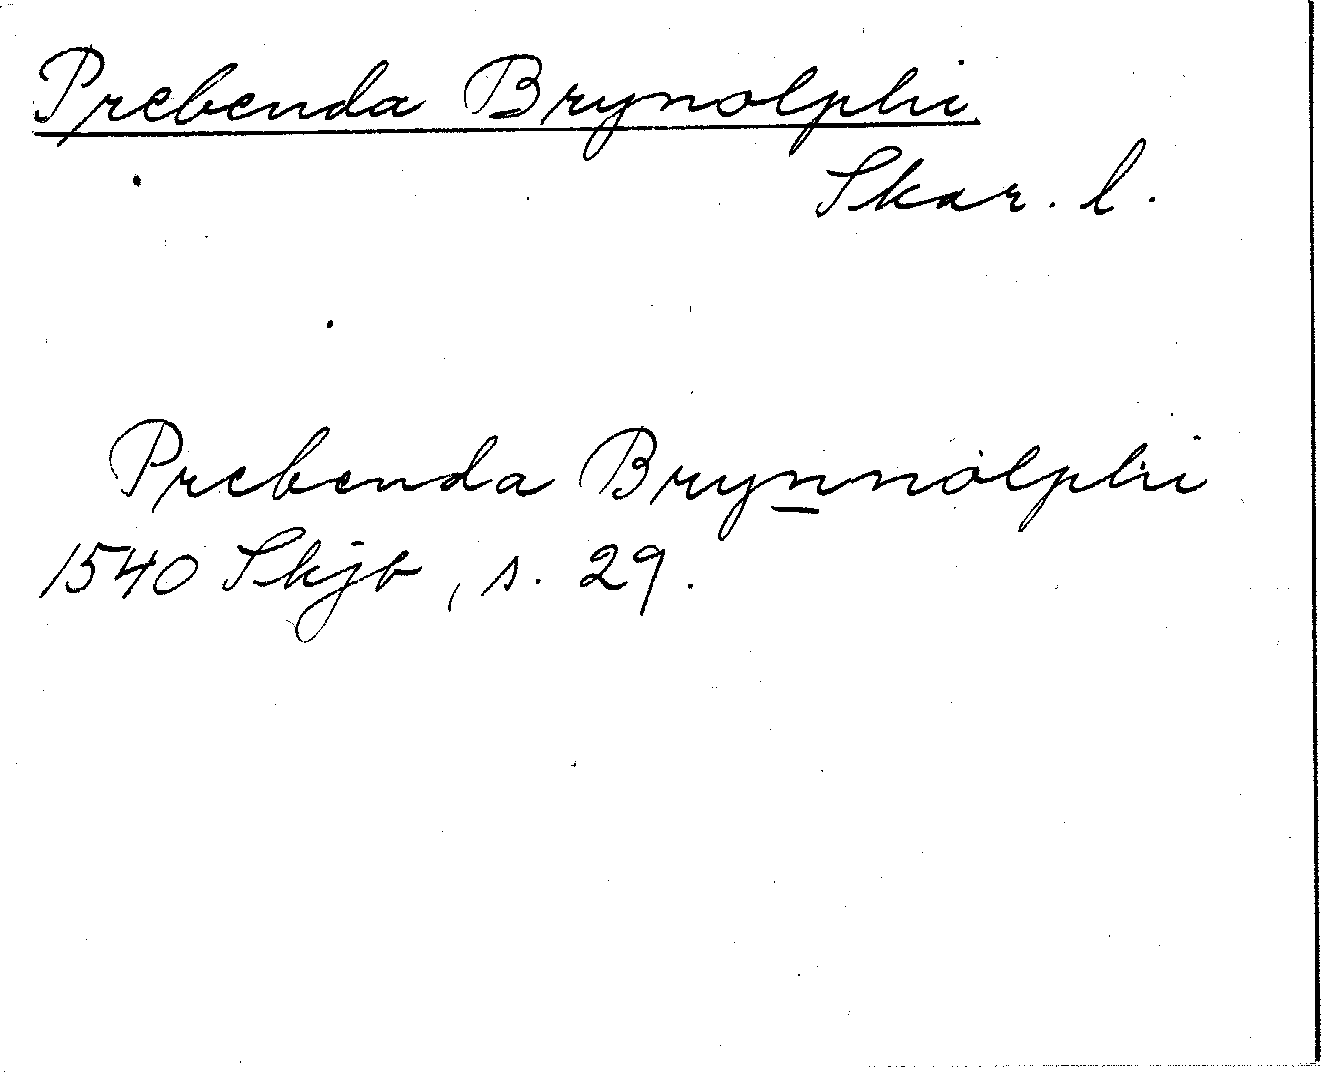 Prebenda Brynolphi
Skar. l.
Prebenda Brynnolphi
1540 Skjb, s. 29.